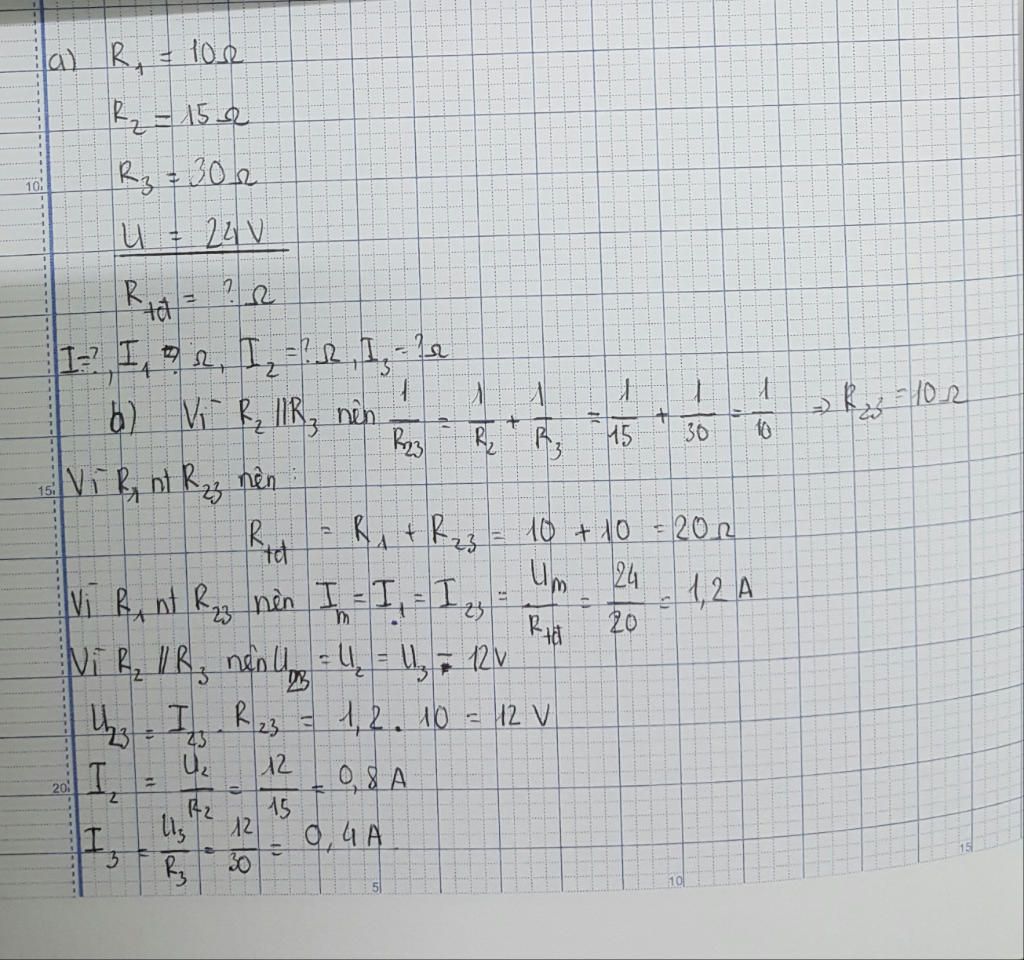 a) R₁ = 10Ω
R₂ = 15Ω
R₃ = 30Ω
U = 24V
Rtđ = ? Ω
I=?, I₁ = ? Ω, I₂ = ? Ω, I₃ = ? Ω
b) Vì R₂ // R₃ nên 1/R₂₃ = 1/R₂ + 1/R₃ = 1/15 + 1/30 = 1/10 ⇒ R₂₃ = 10Ω
Vì R₁ nt R₂₃ nên:
Rtđ = R₁ + R₂₃ = 10 + 10 = 20Ω
Vì R₁ nt R₂₃ nên Iₘ = I₁ = I₂₃ = Uₘ/Rtđ = 24/20 = 1,2 A
Vì R₂ // R₃ nên U₂₃ = U₂ = U₃ = 12V
U₂₃ = I₂₃ . R₂₃ = 1,2 . 10 = 12 V
I₂ = U₂/R₂ = 12/15 = 0,8 A
I₃ = U₃/R₃ = 12/30 = 0,4 A
10
15
20
5
10
15